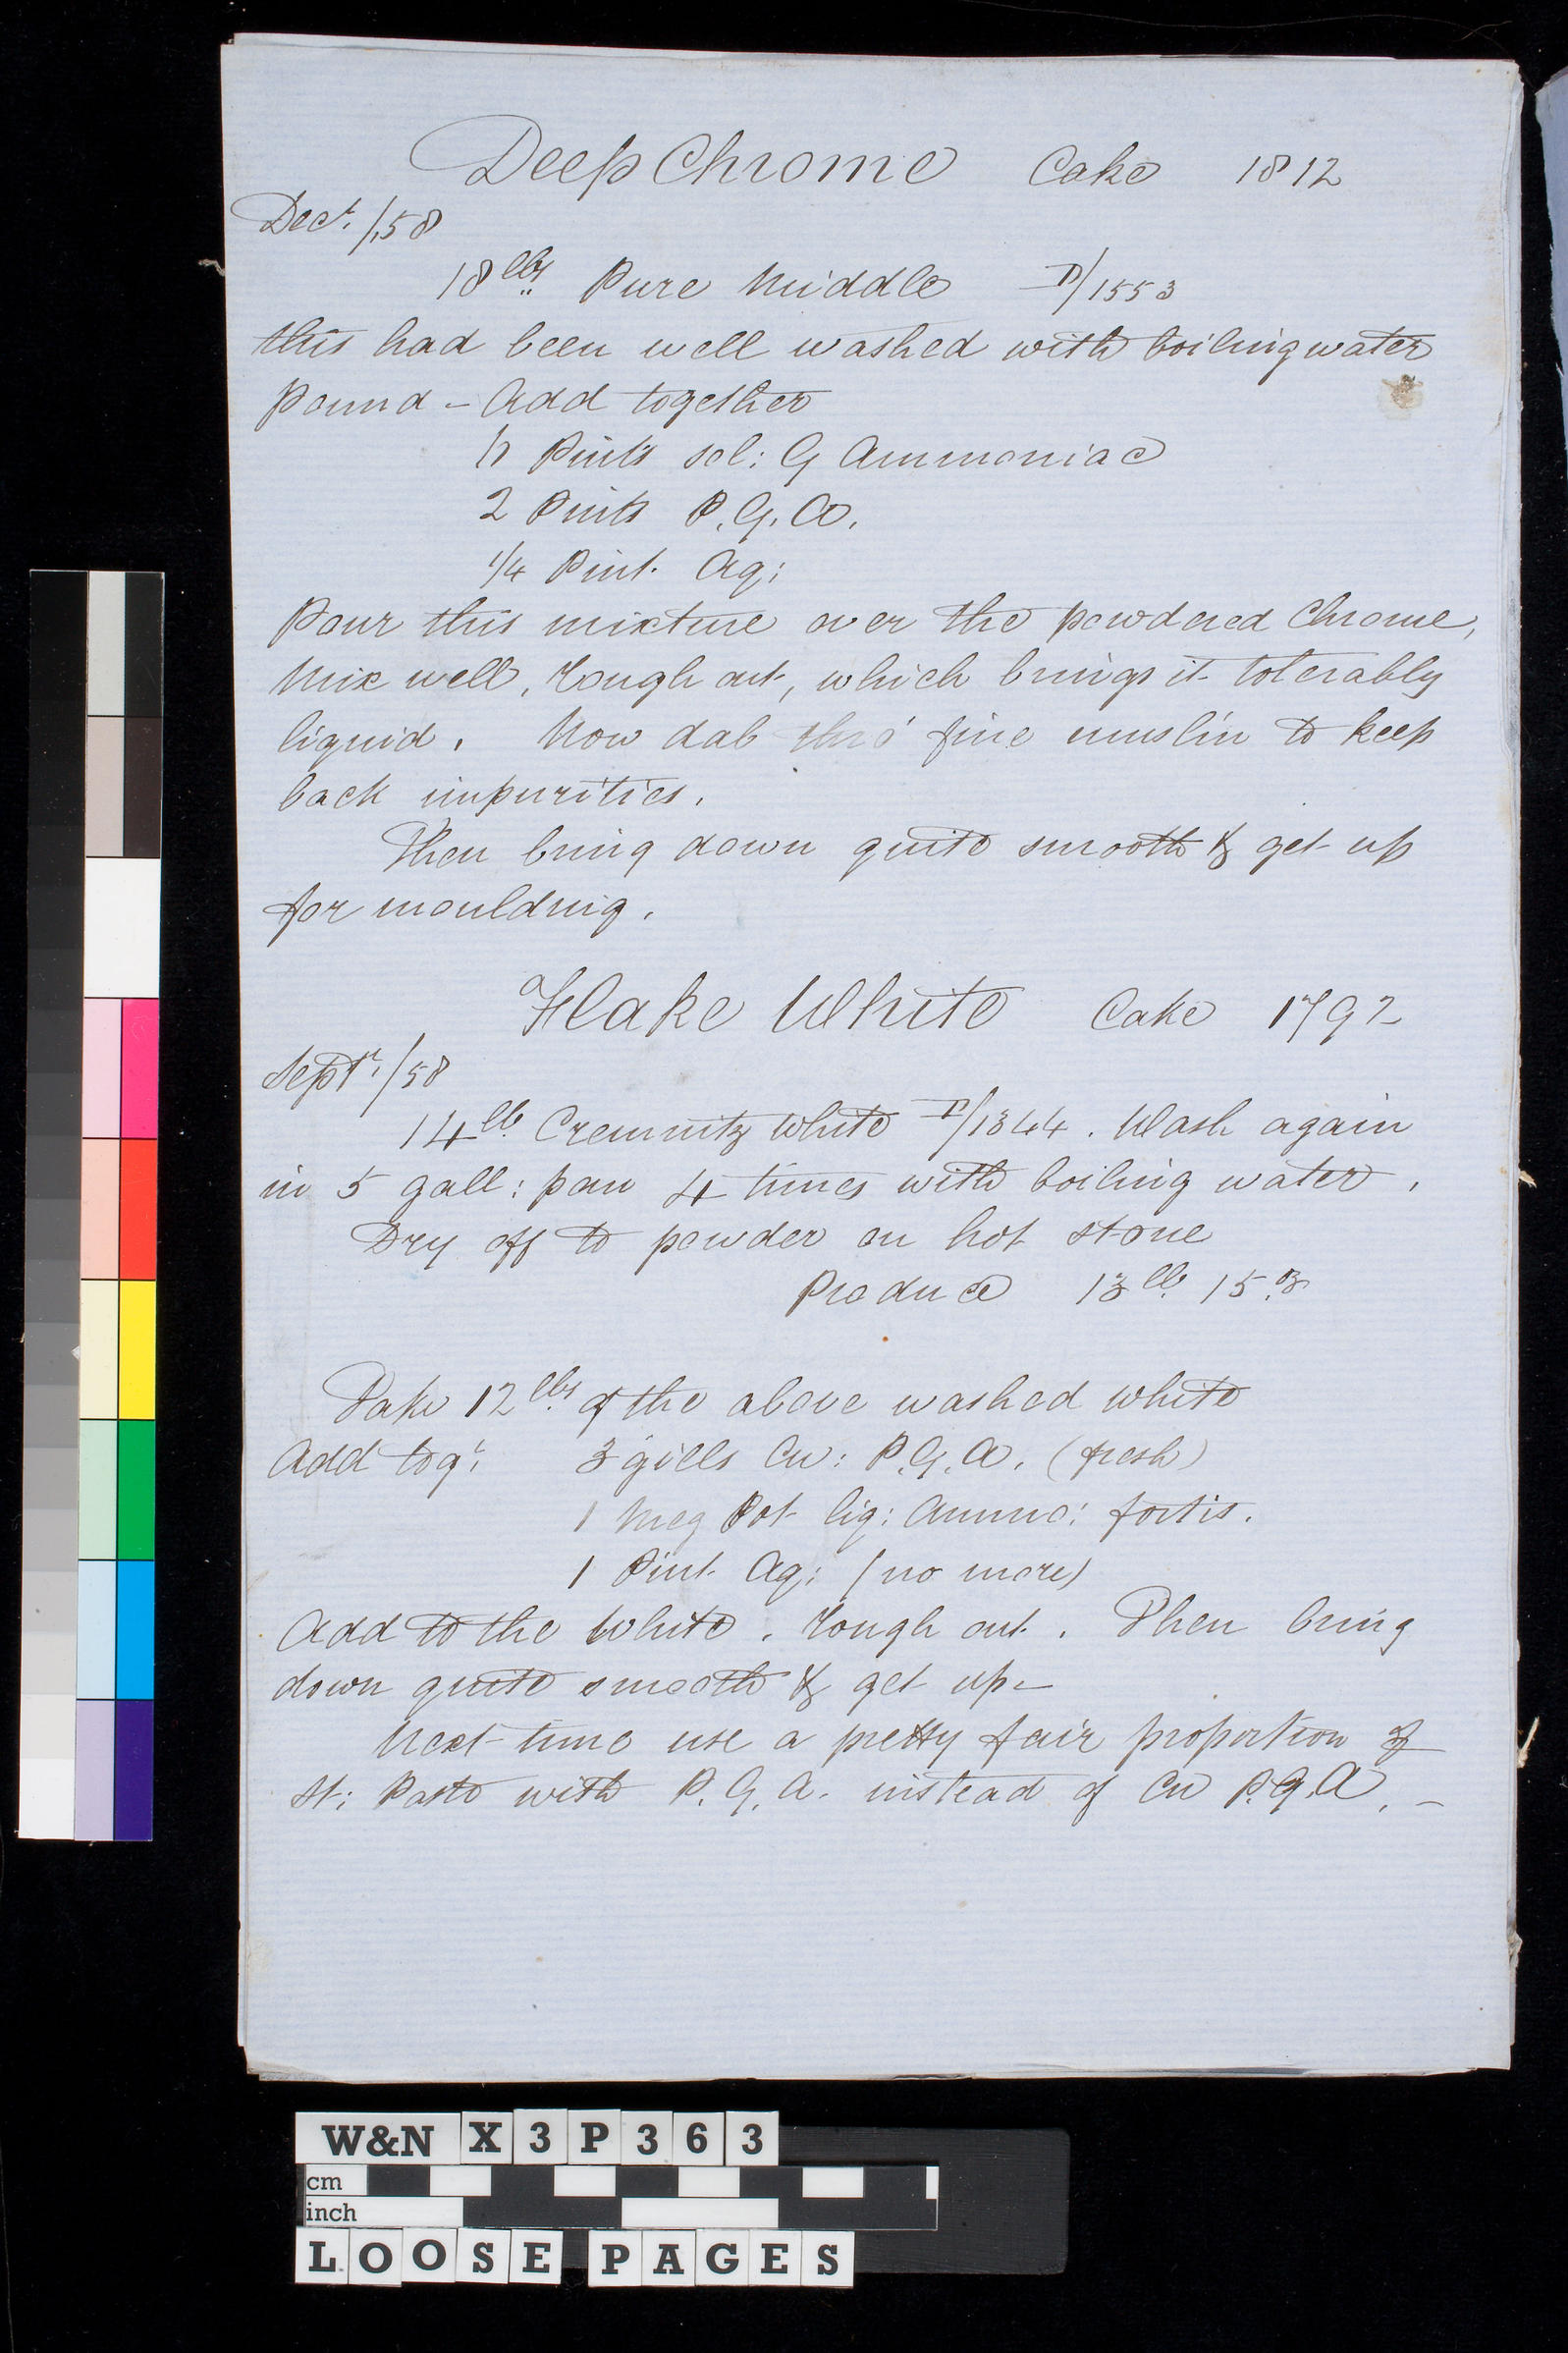 Deep Chrome Cake 1812
Decr. /58
18 lbs Pure Middle P/1553
this had been well washed with boiling water
Pound - Add together
Pints sol: G Ammoniac
2 Pints P. G. A.
1/4 Pint. Aq:
Pour this mixture over the powdered Chrome,
Mix well, rough out, which brings it tolerably
liquid. Now dab thro' fine muslin to keep
back impurities.
Then bring down quite smooth & get up
for moulding.
Flake White Cake 1792
Septr. /58
14 lb. Cremnitz White P/1344. Wash again
in 5 gall: pan 4 times with boiling water.
Dry off to powder on hot stone
Produce 13 lb. 15 oz.
Take 12 lbs. of the above washed white
Add togr: 3 gills Cu: P. G. A. (fresh)
1 Meg Pot liq: Ammo: fortis.
1 Pint Aq: (no more)
Add to the White. rough out. Then bring
down quite smooth & get up -
Next time use a pretty fair proportion of
St: Paste with P. G. A. instead of Cu P. G. A. -
W&N X3P363
cm
inch
LOOSE PAGES